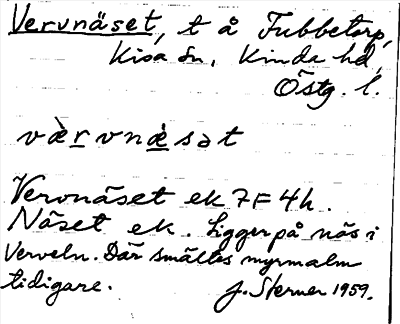 Vervnäset, t å Fubbetorp,
Kisa sn, Kinda hd,
Östg. l.
væ̀rvnæ̀sət
Vervnäset ek 7F 4h.
Näset ek. Ligger på näs i
Verveln. Där smältes myrmalm
tidigare. J. Sterner 1959.